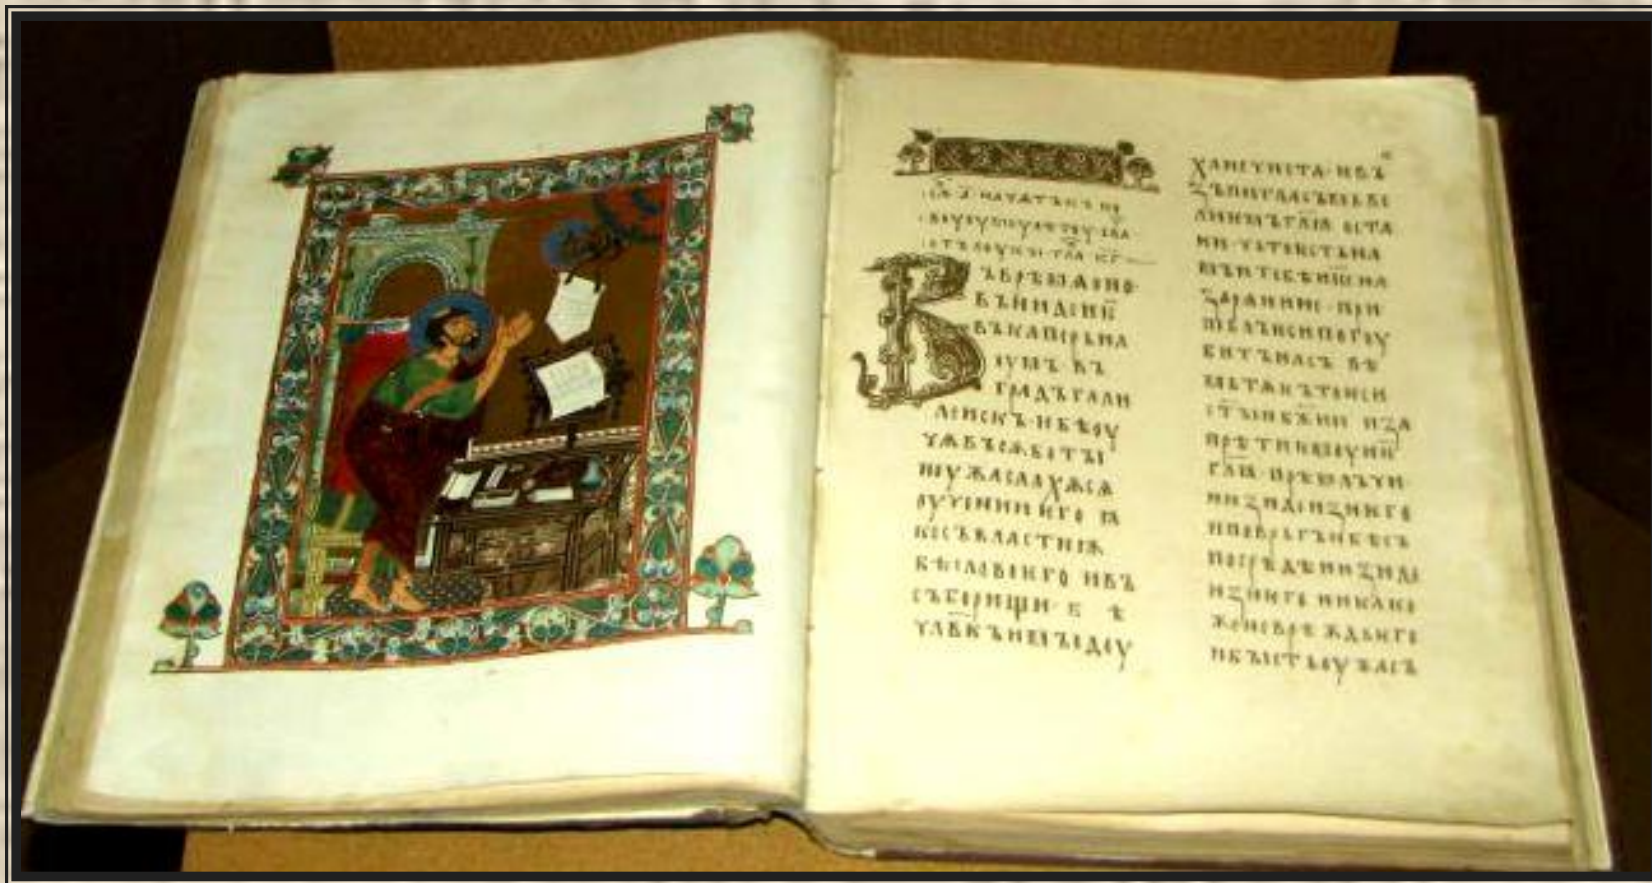 ВЪВРѢМѦОНО·
ВЪНИДЕИС҃
ВЪКАПЕРЪНА
ОУМЪ ВЪ
ГРАДЪГАЛИ
ЛЕИСКЪ·ИБѢОУ
ЧѦВЪСѪБОТЫ
ИОУЖАСААХѪСѦ
ОУЧЕНИИѤГО ꙖКОСЪВЛАСТИѬ
БѢСЛОВОѤГО ИВЪ
СЪБОРИЩИ·Б Ѣ
ЧЛ҃ВКЪИМЫДОУ
ХАНЕЧИСТА·ИВЪ
ЗЪПИГЛАСЪМЬВЕ
ЛИИМЬГЛ҃Ѧ ОСТА
НИ·ЧЬТОЕСТЬНА
МЪИТЕБѢИС҃ЕНА
ЗАРАНИНЕ·ПРИ
ШЬЛЪѤСИПОГОУ
БИТЪНАСЪ ВѢ
МЬТѦКЪТОѤСИ
СТ҃ЫИБЖ҃ИИ ИЗА
ПРѢТИѤМОУИС҃
ГЛ҃Ѧ·ПРѢМЛЪЧИ·
ИИЗИДИИЗНѤГО
ИПОВРЬГЪИБѢСЪ
ПОСРѢДѢИИЗИДЕ
ИЗНѤГО НИКАКО
ЖЕНЕВРѢЖДЬѤГО
ИБЫСТЬОУЖАСЪ